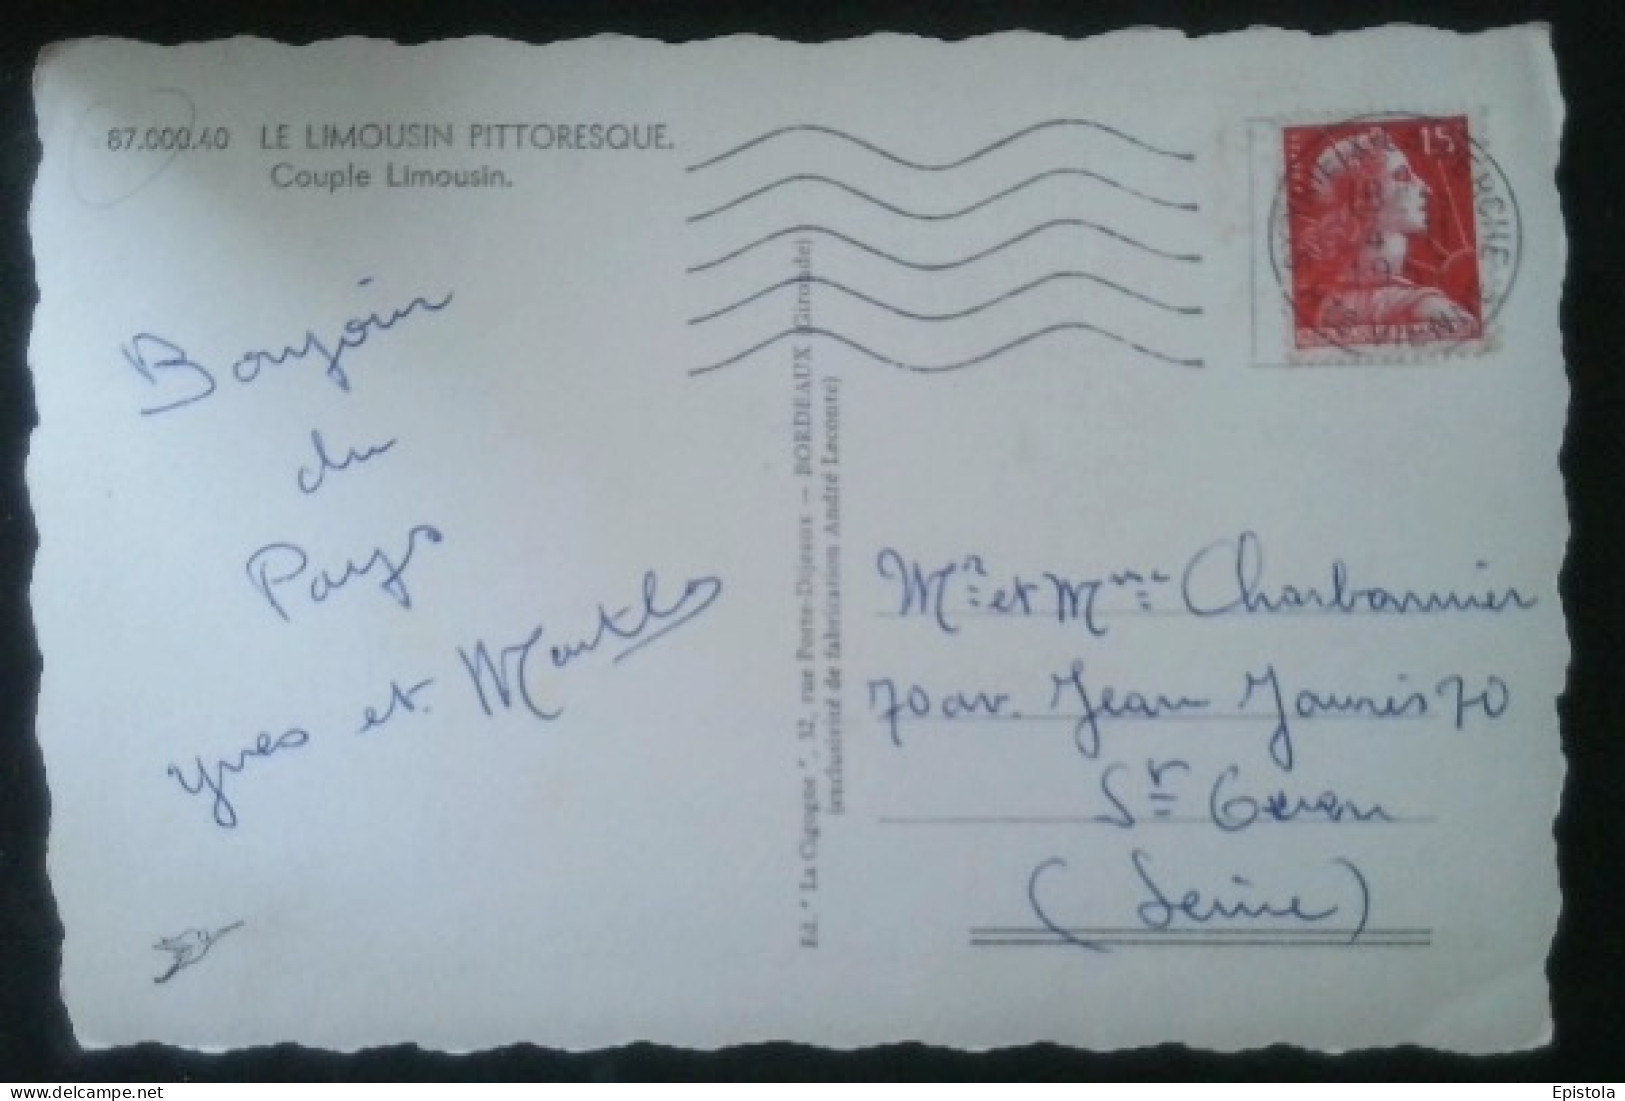 87.000.40 LE LIMOUSIN PITTORESQUE.
Couple Limousin.
15
Bonjour
du
Pays
Yves et
Ed. " La Cigogne ", 32, rue Porte-Dijeaux — BORDEAUX (Gironde)
(exclusivité de fabrication André Leconte)
Mr et Mme Charbonnier
70 av. Jean Jaurès 70
(Seine)
Epistola